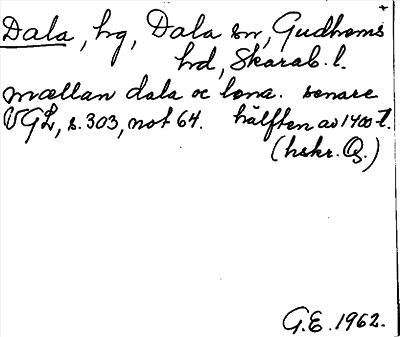 Dala, hg, Dala sn, Gudhems
hd, Skarab. l.
mællan dala oc lona. senare
VGL, s. 303, not 64. hälften av 1400-t.
(hskr. O.)
G.E. 1962.